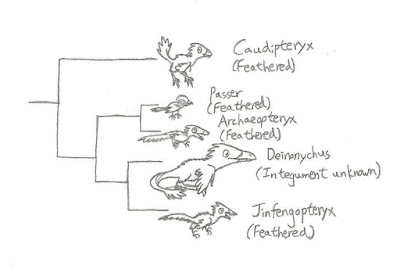 Caudipteryx
(Feathered)
Passer
(Feathered)
Archaeopteryx
(Feathered)
Deinonychus
(Integument unknown)
Jinfengopteryx
(Feathered)